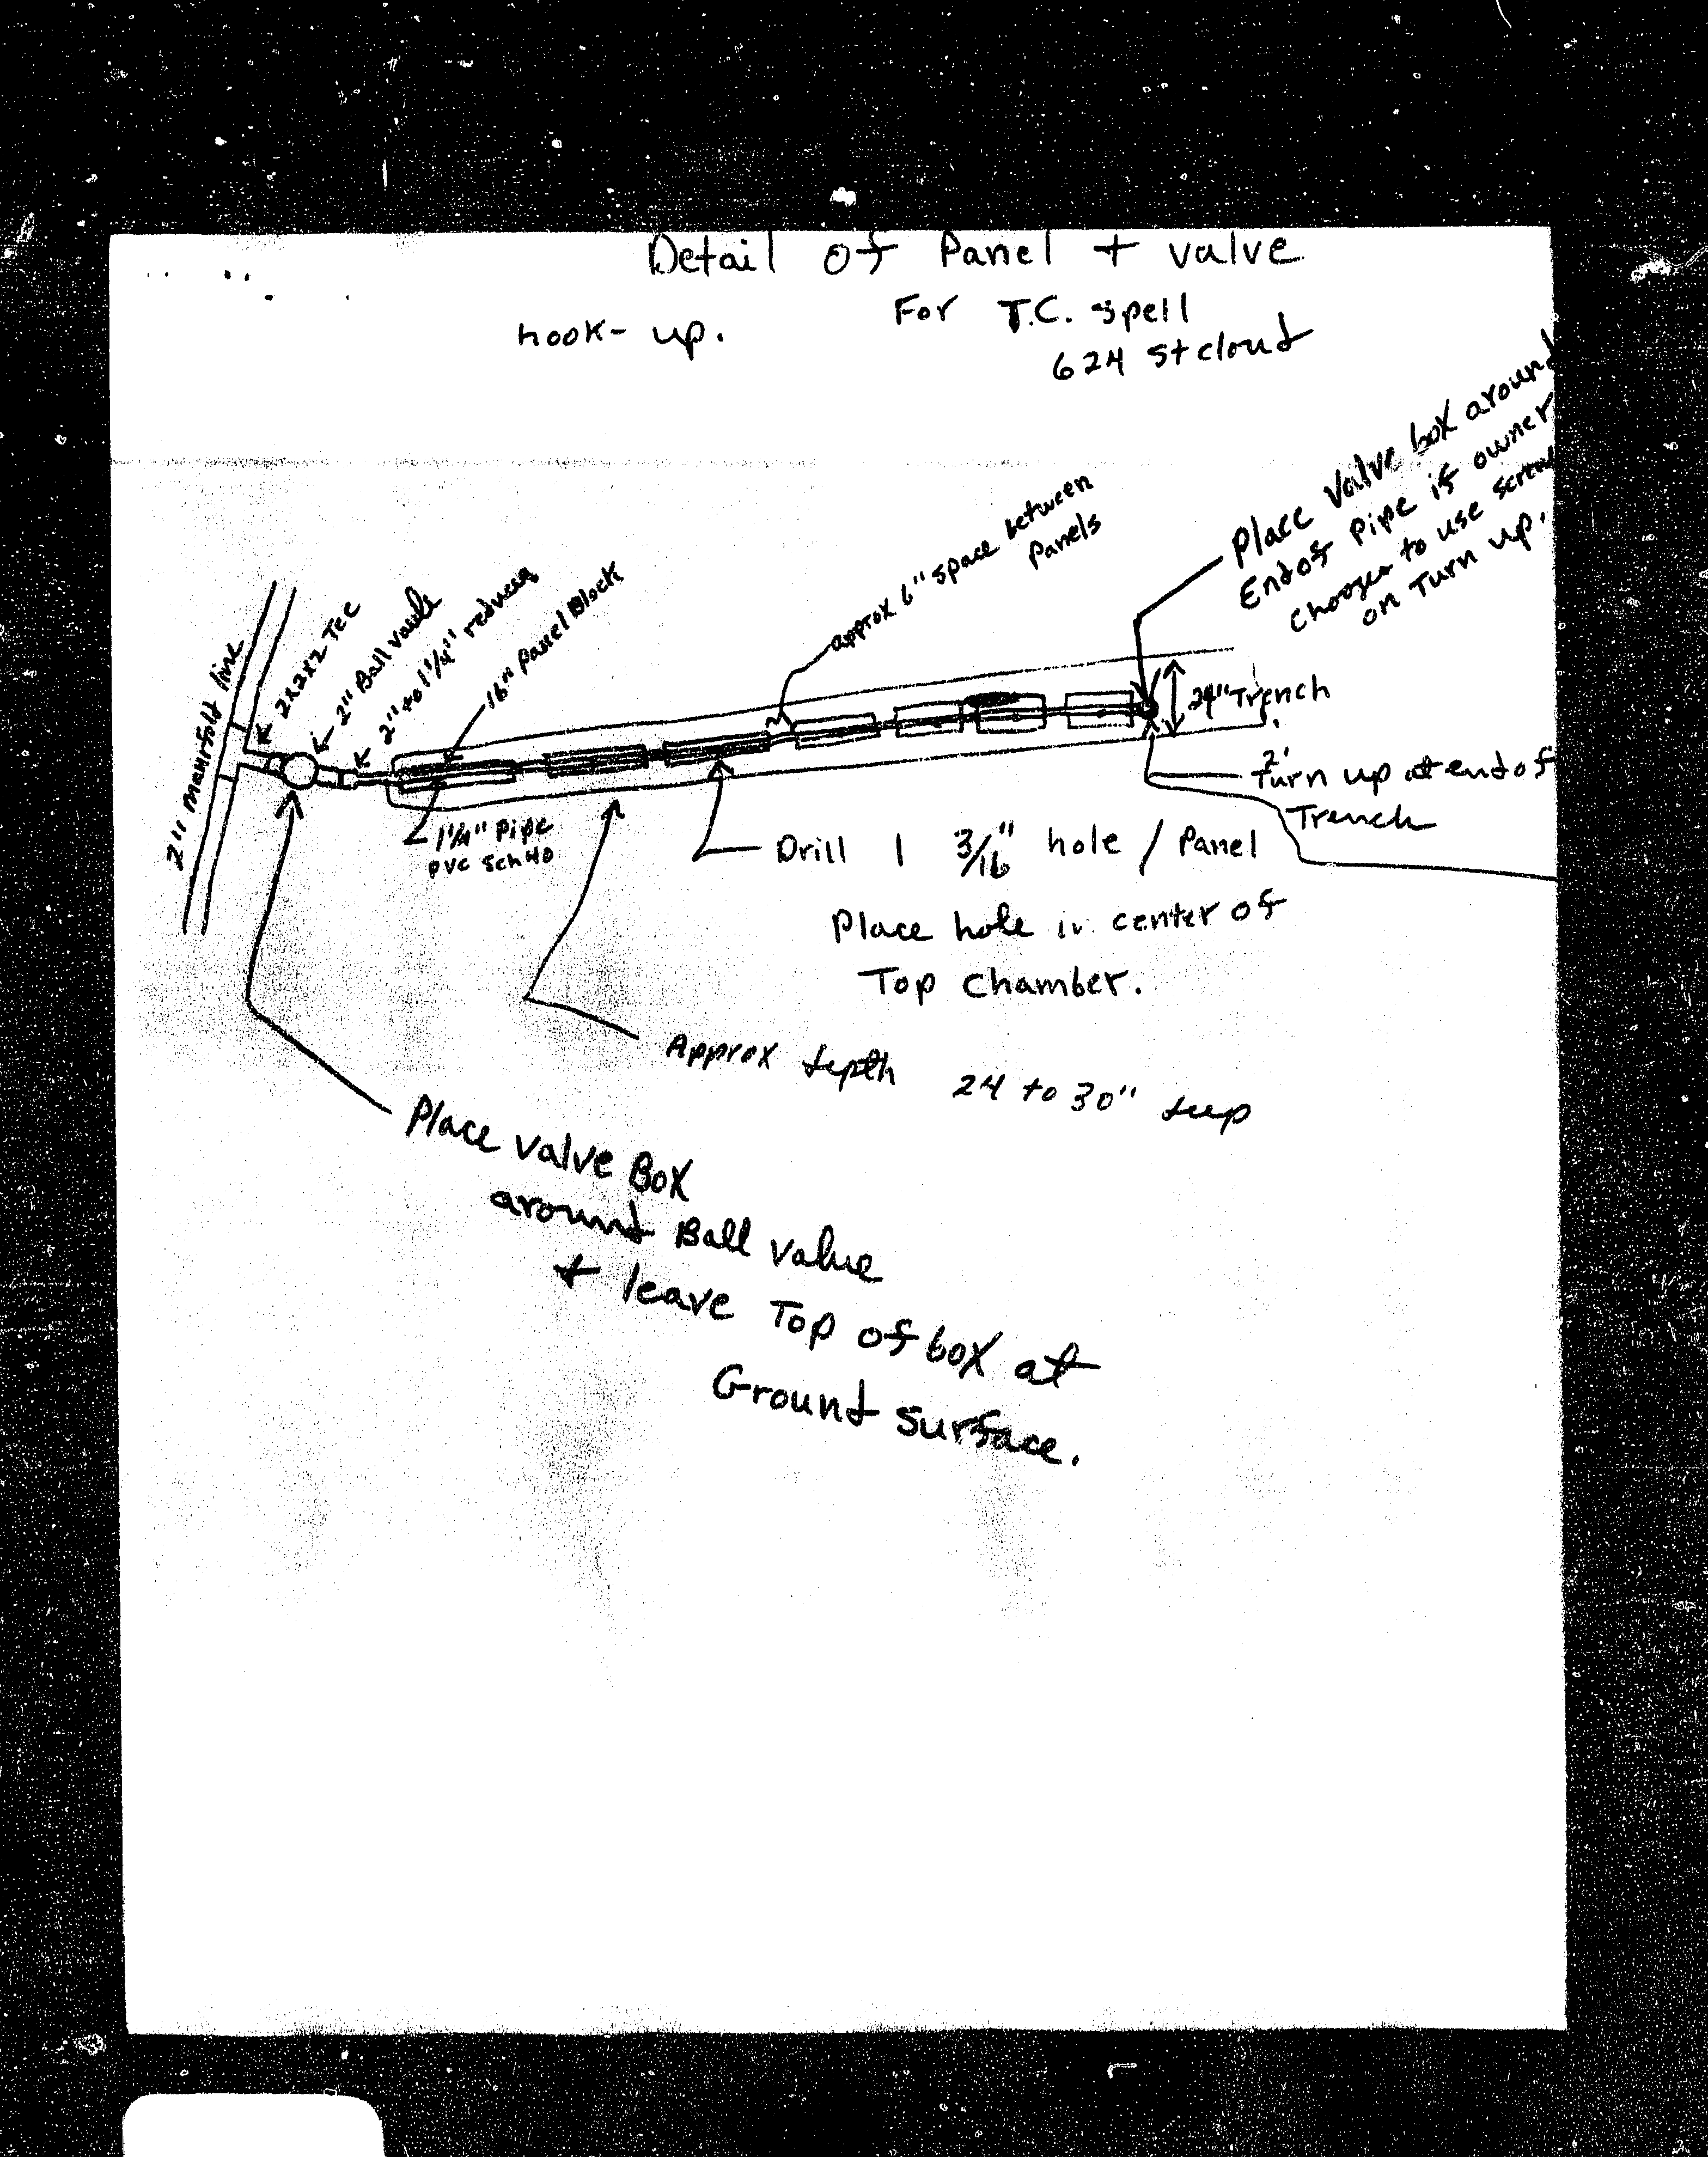 Detail of Panel + valve
hook-up.
For T.C. Spell
624 St cloud
Place Valve box around
End of Pipe if owner
chooses to use screw
on Turn up.
approx 6" space between
Panels
2" manifold line
2x2x2 Tee
2" Ball vavle
2" to 1 1/4" reducer
16" Panel Block
24" Trench
2'
Turn up at end of
Trench
1 1/4" Pipe
PVC Sch 40
Drill 1 3/16" hole / Panel
Place hole in center of
Top Chamber.
Approx depth 24 to 30" deep
Place valve Box
around Ball value
+ leave Top of box at
Ground surface.